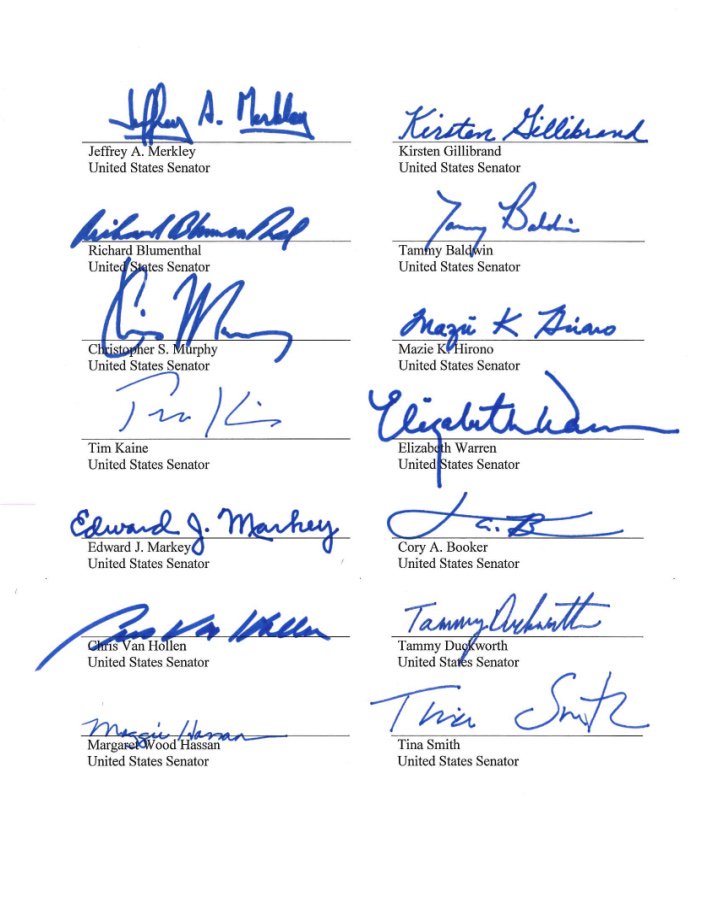 Jeffrey A. Merkley
Jeffrey A. Merkley
United States Senator
Kirsten Gillibrand
Kirsten Gillibrand
United States Senator
Richard Blumenthal
Richard Blumenthal
United States Senator
Tammy Baldwin
Tammy Baldwin
United States Senator
Chris Murphy
Christopher S. Murphy
United States Senator
Mazie K Hirono
Mazie K. Hirono
United States Senator
Tim Kaine
Tim Kaine
United States Senator
Elizabeth Warren
Elizabeth Warren
United States Senator
Edward J. Markey
Edward J. Markey
United States Senator
Cory A. Booker
United States Senator
Chris Van Hollen
Chris Van Hollen
United States Senator
Tammy Duckworth
Tammy Duckworth
United States Senator
Maggie Hassan
Margaret Wood Hassan
United States Senator
Tina Smith
Tina Smith
United States Senator